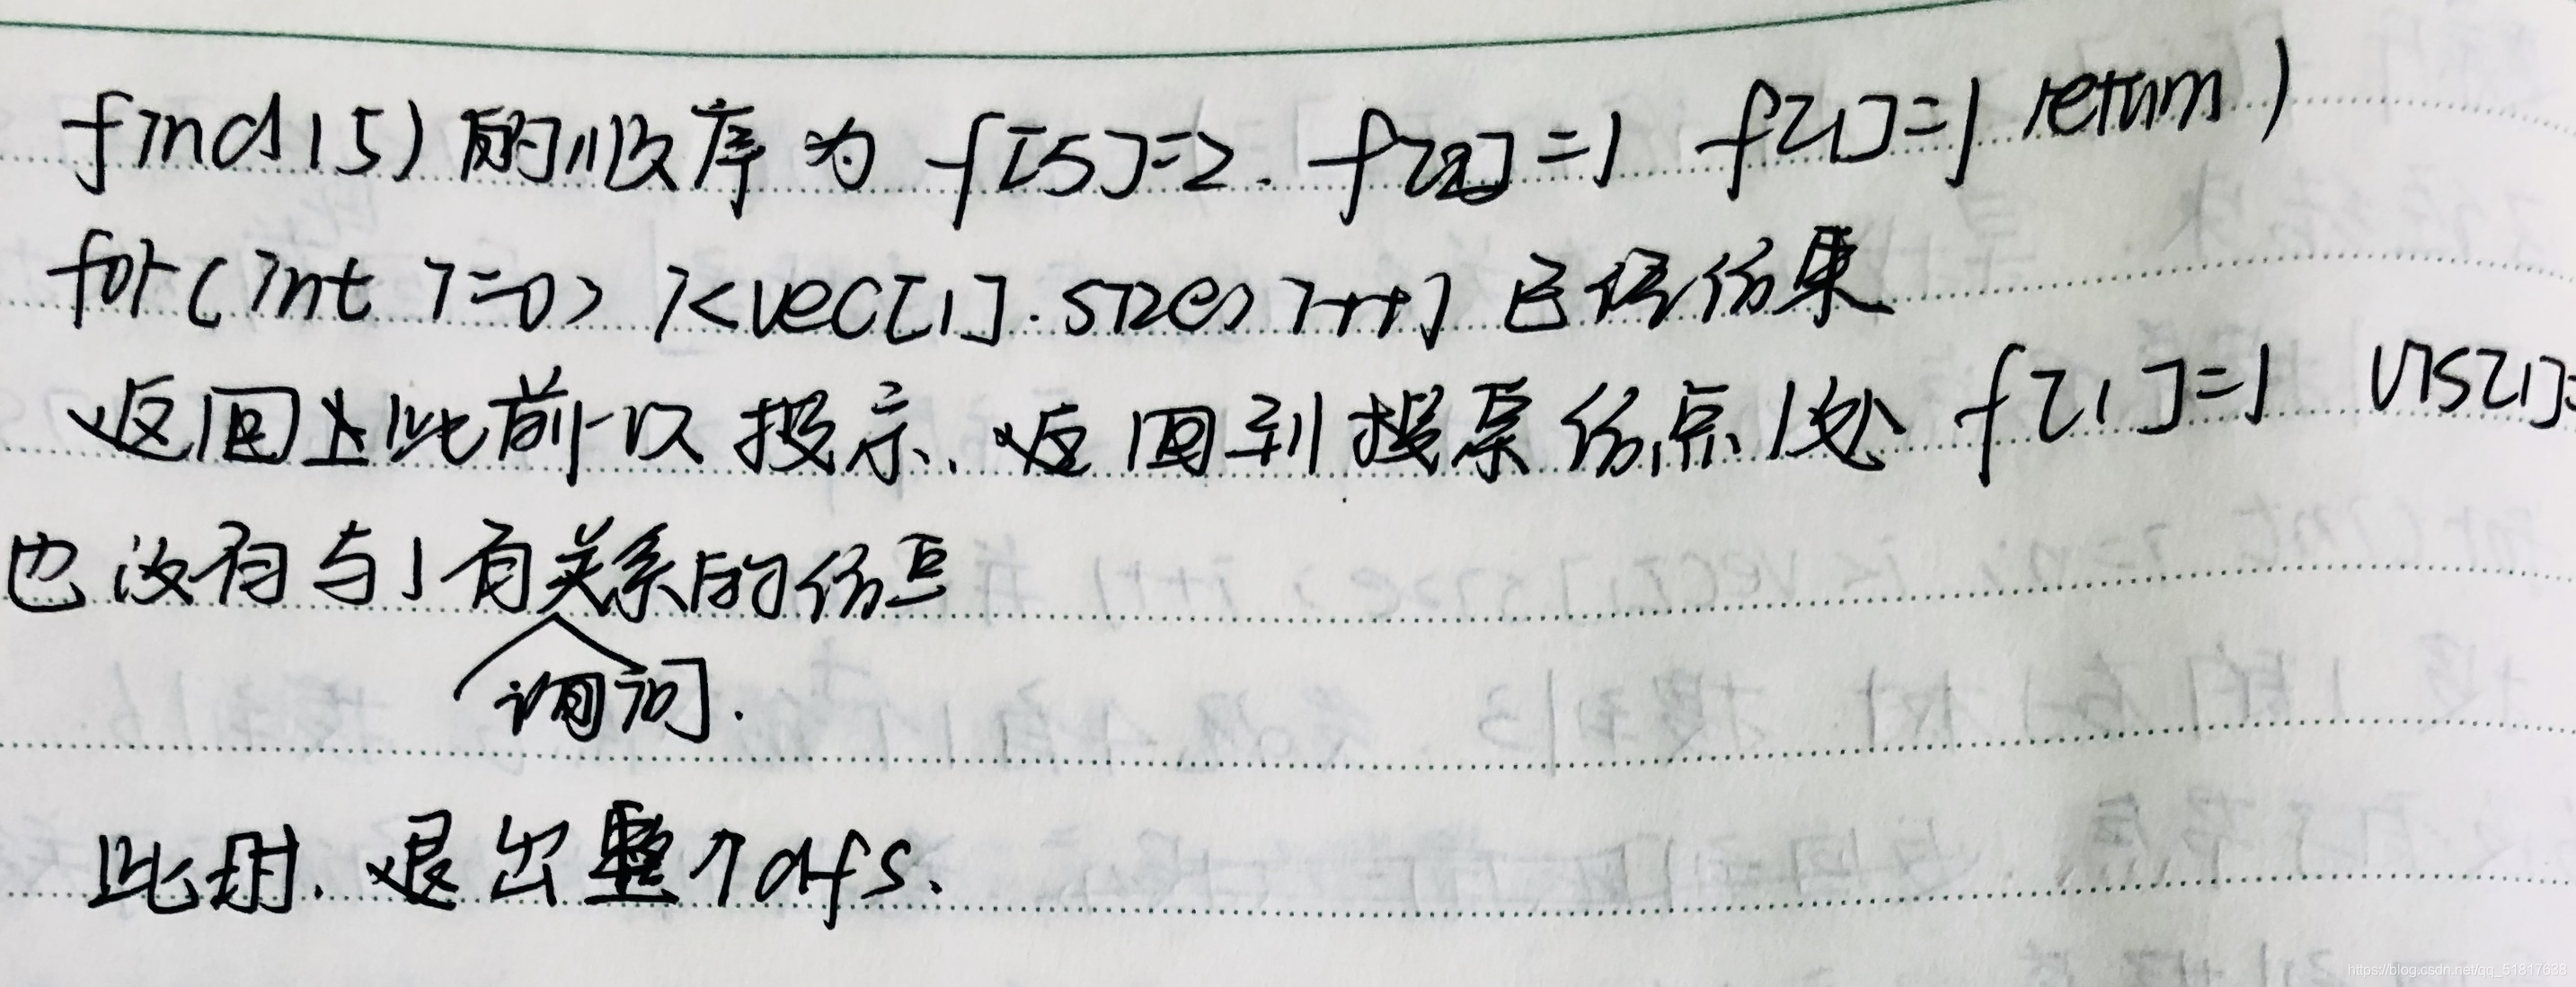 find(5)的顺序为 f[5]=2. f[2]=1 f[1]=1 return)
for(int i=0; i<vec[1].size; i++) 已经结束
返回上此前以搜索. 返回到搜索结点1处 f[1]=1 vis[1]=
也没有与1有关系的结点
询问.
此时. 退出整个dfs.
https://blog.csdn.net/qq_51817638